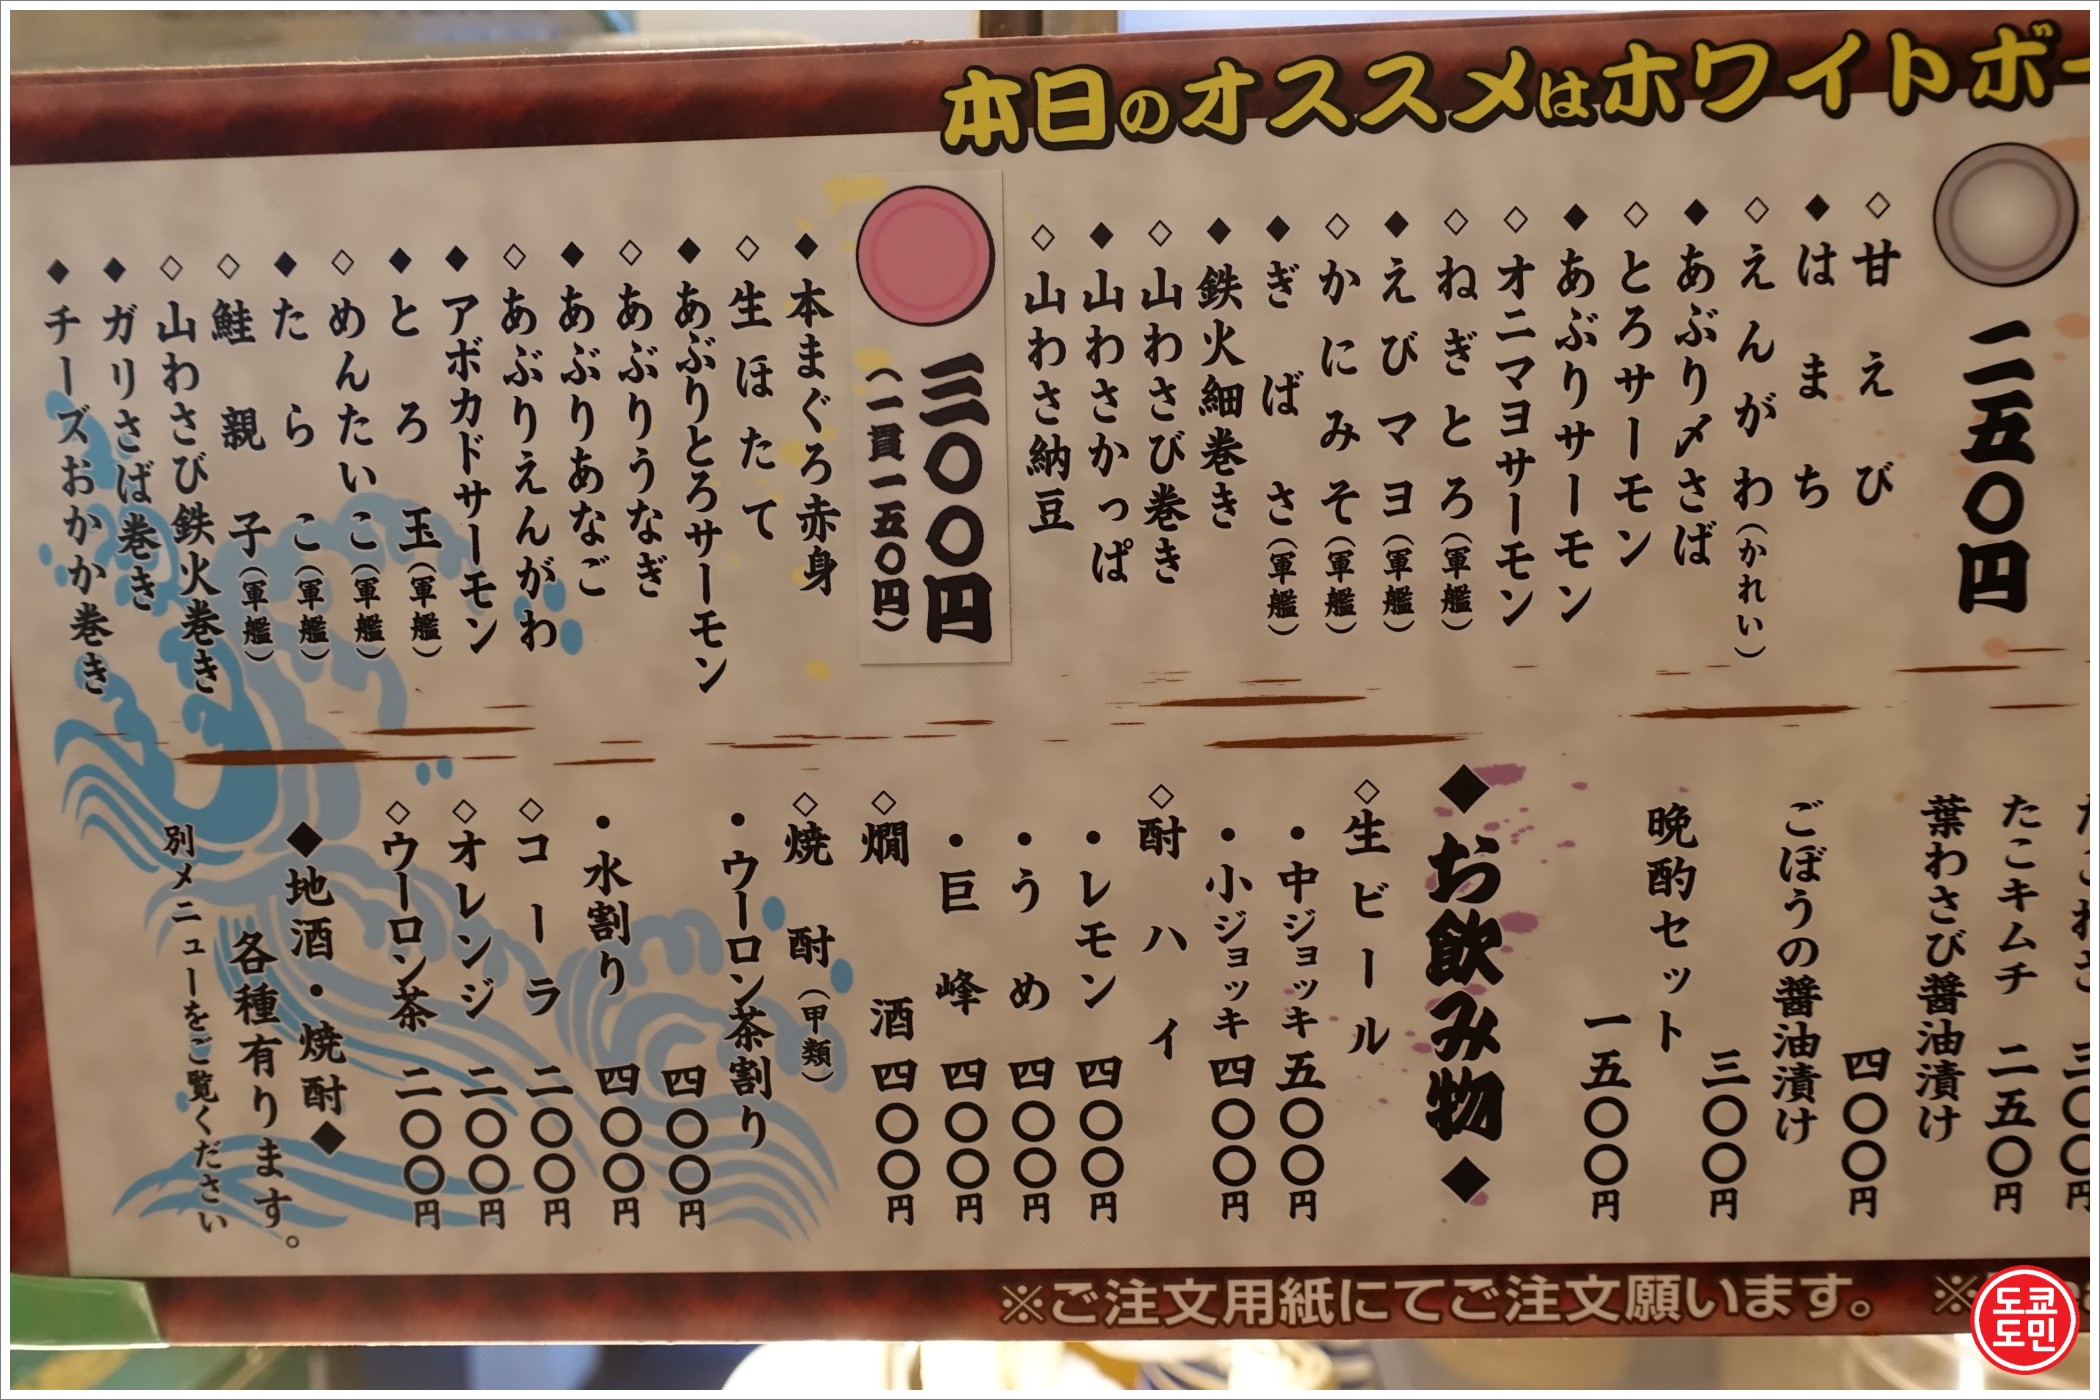 本日のオススメはホワイトボー
二五〇円
◇甘えび
◆はまち
◇えんがわ(かれい)
◆あぶり〆さば
◇とろサーモン
◆あぶりサーモン
◇オニマヨサーモン
◇ねぎとろ(軍艦)
◆えびマヨ(軍艦)
◇かにみそ(軍艦)
◆ぎばさ(軍艦)
◆鉄火細巻き
◇山わさび巻き
◆山わさかっぱ
◇山わさ納豆
三〇〇円
(一貫一五〇円)
◆本まぐろ赤身
◇生ほたて
◆あぶりとろサーモン
◇あぶりうなぎ
◆あぶりあなご
◇あぶりえんがわ
◆アボカドサーモン
◆とろ玉(軍艦)
◇めんたいこ(軍艦)
◆たらこ(軍艦)
◇鮭親子(軍艦)
◇山わさび鉄火巻き
◆ガリさば巻き
◆チーズおかか巻き
たこキムチ 二五〇円
葉わさび醤油漬け
四〇〇円
ごぼうの醤油漬け
三〇〇円
晩酌セット
一五〇〇円
◆お飲み物◆
◇生ビール
・中ジョッキ 五〇〇円
・小ジョッキ 四〇〇円
◇酎ハイ
・レモン 四〇〇円
・うめ 四〇〇円
・巨峰 四〇〇円
◇燗酒 四〇〇円
◇焼酎(甲類)
・ウーロン茶割り
四〇〇円
・水割り 四〇〇円
◇コーラ 二〇〇円
◇オレンジ 二〇〇円
◇ウーロン茶 二〇〇円
◆地酒・焼酎◆
各種有ります。
別メニューをご覧ください
※ご注文用紙にてご注文願います。 ※
도쿄
도민